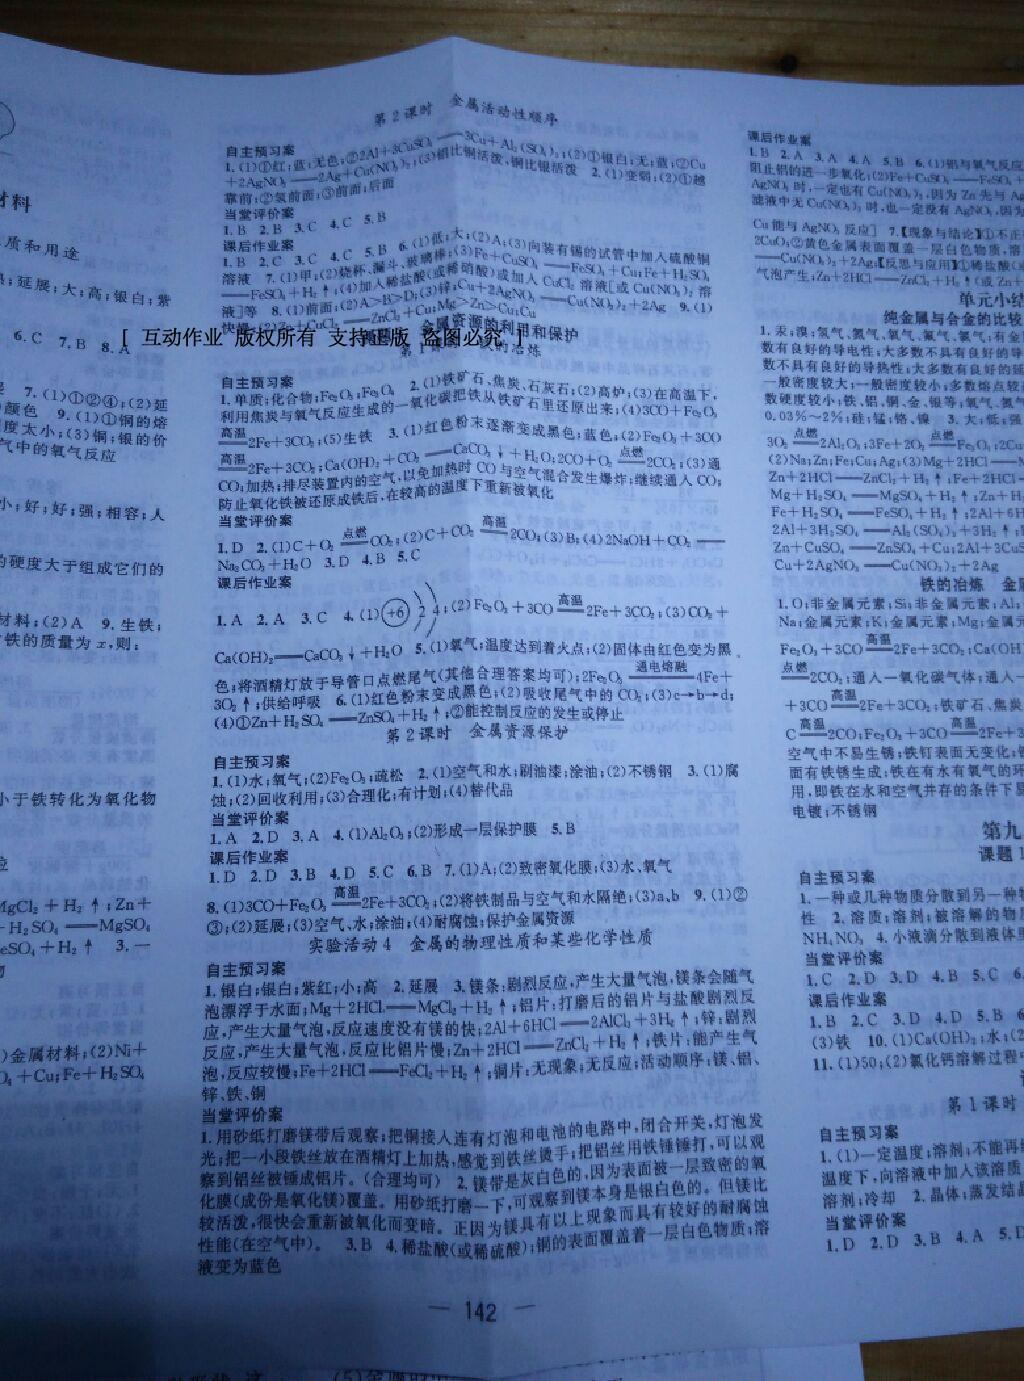 第2课时 金属活动性顺序
自主预习案
1.(1)①红;蓝;无色;②2Al+3CuSO₄══3Cu+Al₂(SO₄)₃;(2)①银白;无;蓝;②Cu
+2AgNO₃══2Ag+Cu(NO₃)₂;(3)铝比铜活泼、铜比银活泼 2.(1)变弱;(2)①越
靠前;②氢前面;③前面;后面
当堂评价案
1.B 2.B 3.C 4.C 5.B
课后作业案
1.B 2.C 3.C 4.C 5.B 6.(1)低;大;(2)A;(3)向装有锡的试管中加入硫酸铜
溶液 7.(1)甲;(2)烧杯、漏斗、玻璃棒;(3)Fe+CuSO₄══FeSO₄+Cu;Fe+H₂SO₄
══FeSO₄+H₂↑;(4)加入稀盐酸(或稀硝酸)或加入CuCl₂溶液[或Cu(NO₃)₂溶
液]等 8.(1)前面;(2)A>B>D;(3)锌;Cu+2AgNO₃══Cu(NO₃)₂+2Ag 9.(1)
[ 互动作业 版权所有 支持正版 盗图必究 ]
金属资源的利用和保护
自主预习案
1.单质;化合物;Fe₂O₃;Fe₃O₄ 2.(1)铁矿石、焦炭、石灰石;(2)高炉;(3)在高温下,
利用焦炭与氧气反应生成的一氧化碳把铁从铁矿石里还原出来;(4)3CO+Fe₂O₃
高温══2Fe+3CO₂;(5)生铁 3.(1)红色粉末逐渐变成黑色;蓝色;(2)Fe₂O₃+3CO
高温══2Fe+3CO₂;Ca(OH)₂+CO₂══CaCO₃↓+H₂O;2CO+O₂点燃══2CO₂;(3)通
CO;加热;排尽装置内的空气,以免加热时CO与空气混合发生爆炸;继续通入CO;
防止氧化铁被还原成铁后,在较高的温度下重新被氧化
当堂评价案
1.D 2.(1)C+O₂点燃══CO₂;(2)C+CO₂高温══2CO;(3)B;(4)2NaOH+CO₂══
Na₂CO₃+H₂O 3.D 4.B 5.C
课后作业案
1.A 2.A 3.C 4.(1)+6 2 4;(2)Fe₂O₃+3CO高温══2Fe+3CO₂;(3)CO₂+
Ca(OH)₂══CaCO₃↓+H₂O 5.(1)氧气;温度达到着火点;(2)固体由红色变为黑
色;将酒精灯放于导管口点燃尾气(其他合理答案均可);2Fe₂O₃通电熔融══4Fe+
3O₂↑;供给呼吸 6.(1)红色粉末变成黑色;(2)吸收尾气中的CO₂;(3)c→b→d;
(4)①Zn+H₂SO₄══ZnSO₄+H₂↑;②能控制反应的发生或停止
第2课时 金属资源保护
自主预习案
1.(1)水;氧气;(2)Fe₂O₃;疏松 2.(1)空气和水;刷油漆;涂油;(2)不锈钢 3.(1)腐
蚀;(2)回收利用;(3)合理化;有计划;(4)替代品
当堂评价案
1.A 2.D 3.A 4.(1)Al₂O₃;(2)形成一层保护膜 5.B
课后作业案
1.D 2.D 3.B 4.D 5.C 6.B 7.(1)A;(2)致密氧化膜;(3)水、氧气
8.(1)3CO+Fe₂O₃高温══2Fe+3CO₂;(2)将铁制品与空气和水隔绝;(3)a、b 9.(1)②
③;(2)延展;(3)空气、水;涂油;(4)耐腐蚀;保护金属资源
实验活动4 金属的物理性质和某些化学性质
自主预习案
1.银白;银白;紫红;小;高 2.延展 3.镁条:剧烈反应,产生大量气泡,镁条会随气
泡漂浮于水面;Mg+2HCl══MgCl₂+H₂↑;铝片:打磨后的铝片与盐酸剧烈反
应,产生大量气泡,反应速度没有镁的快;2Al+6HCl══2AlCl₃+3H₂↑;锌:剧烈
反应,产生大量气泡,反应比铝片慢;Zn+2HCl══ZnCl₂+H₂↑;铁片:能产生气
泡,反应较慢;Fe+2HCl══FeCl₂+H₂↑;铜片:无现象;无反应;活动顺序:镁、铝、
锌、铁、铜
当堂评价案
1.用砂纸打磨镁带后观察;把铜接入连有灯泡和电池的电路中,闭合开关,灯泡发
光;把一小段铁丝放在酒精灯上加热,感觉到铁丝烫手;把铝丝用铁锤锤打,可以观
察到铝丝被锤成铝片。(合理均可) 2.镁带是灰白色的,因为表面被一层致密的氧
化膜(成份是氧化镁)覆盖。用砂纸打磨一下,可观察到镁本身是银白色的。但镁比
较活泼,很快会重新被氧化而变暗。正因为镁具有以上现象而具有较好的耐腐蚀
性能(在空气中)。 3.B 4.稀盐酸(或稀硫酸);铜的表面覆盖着一层白色物质;溶
液变为蓝色
— 142 —
材料
质和用途
;延展;大;高;银白;紫
6.C 7.B 8.A
7.(1)①②④;(2)延
颜色 9.(1)①铜的熔
度太小;(3)铜;银的价
气中的氧气反应
小;好;好;强;相容;人
的硬度大于组成它们的
材料;(2)A 9.生铁;
铁的质量为x,则:
小于铁转化为氧化物
位
MgCl₂+H₂↑;Zn+
+H₂SO₄══MgSO₄
eSO₄+H₂↑ 3.一
物
)金属材料;(2)Ni+
O₄+Cu;Fe+H₂SO₄
课后作业案
1.B 2.A 3.A 4.A 5.B 6.(1)铝与氧气反应
阻止铝的进一步氧化;(2)Fe+CuSO₄══FeSO₄+
AgNO₃时,一定也有Cu(NO₃)₂,因为Zn先与Ag
滤液中无Cu(NO₃)₂时,也一定没有AgNO₃,因为
Cu能与AgNO₃反应] 7.【现象与结论】①不正
2CuO;②黄色金属表面覆盖一层白色物质,溶
══Cu(NO₃)₂+2Ag;【反思与应用】①稀盐酸(或
气泡产生;Zn+2HCl══ZnCl₂+H₂↑(或Zn+
单元小结
纯金属与合金的比较
1.汞;溴;氢气、氮气、氧气、氟气、氯气;有金
数有良好的导电性;大多数不具有良好的导
数有良好的导热性;大多数不具有良好的导
一般密度较大;一般密度较小;多数熔点较
数硬度较小;铁、铝、铜、金、银等;氧气、氮气
0.03%~2%;硅;锰;铬、镍 3.大;低;强
3O₂点燃══2Al₂O₃;3Fe+2O₂点燃══Fe₃O₄;2Cu
(2)Na;Zn;Fe;Cu;Ag;(3)Mg+2HCl══M
Zn+2HCl══ZnCl₂+H₂↑;Fe+2HCl══
Mg+H₂SO₄══MgSO₄+H₂↑;Zn+H₂
Fe+H₂SO₄══FeSO₄+H₂↑;2Al+6H
2Al+3H₂SO₄══Al₂(SO₄)₃+3H₂↑;
Zn+CuSO₄══ZnSO₄+Cu;2Al+3CuS
Cu+2AgNO₃══Cu(NO₃)₂+2Ag
铁的冶炼 金
1.O;非金属元素;Si;非金属元素;Al;
Na;金属元素;K;金属元素;Mg;金属元
Fe₂O₃+3CO高温══2Fe+3CO₂;Ca(OH
点燃══2CO₂;通入一氧化碳气体;通入一
+3CO高温══2Fe+3CO₂;铁矿石、焦炭
C高温══2CO;Fe₂O₃+3CO高温══2Fe+3
空气中不易生锈;铁钉表面无变化;铁
面有铁锈生成;铁在有水有氧气的环
用,即铁在水和空气并存的条件下
电镀;不锈钢
第九
课题1
自主预习案
1.一种或几种物质分散到另一种物
性 2.溶质;溶剂;被溶解的物质
NH₄NO₃ 4.小液滴分散到液体里
当堂评价案
1.C 2.D 3.D 4.B 5.C 6.
课后作业案
1.B 2.C 3.D 4.D 5.B 6
(3)铁 10.(1)Ca(OH)₂;水;(2
11.(1)50;(2)氯化钙溶解过程
第1课时
自主预习案
1.(1)一定温度;溶剂;不能再继
温度下,向溶液中加入该溶质
溶剂;冷却 2.晶体;蒸发结晶
当堂评价案
1.D 2.D 3.B 4.A 5.D